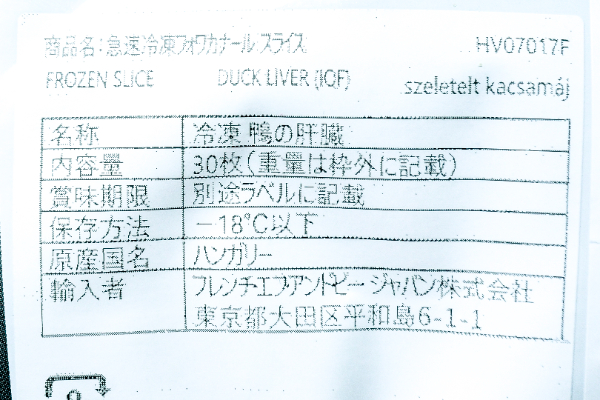 商品名：急速冷凍フォワカナール スライス HV07017F
FROZEN SLICE DUCK LIVER (IQF) szeletelt kacsamáj
名称 冷凍 鴨の肝臓
内容量 30枚（重量は枠外に記載）
賞味期限 別途ラベルに記載
保存方法 －18℃以下
原産国名 ハンガリー
輸入者 フレンチエフアンドビー ジャパン株式会社
東京都大田区平和島6-1-1